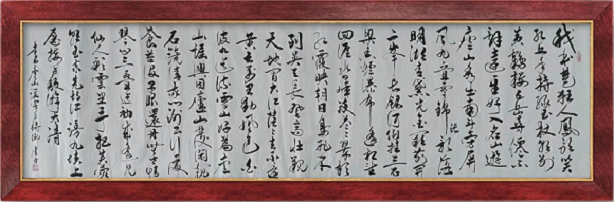 我本楚狂人鳳歌笑
孔丘手持綠玉杖朝別
黃鶴樓五岳尋仙不
辭遠一生好入名山遊
廬山秀出南斗傍屏
風九疊雲錦張影落
明湖青黛光金闕前開
二峰長銀河倒挂三石
梁香爐瀑布遙相望
回崖沓嶂凌蒼蒼翠影
紅霞映朝日鳥飛不
到吳天長登高壯觀
天地間大江茫茫去不還
黃雲萬里動風色白
波九道流雪山好為廬
山謠興因廬山發閑窺
石鏡清我心謝公行處
蒼苔沒早服還丹無世情
琴心三疊道初成遙見
仙人彩雲里手把芙蓉
朝玉京先期汗漫九垓上
願接盧敖遊太清